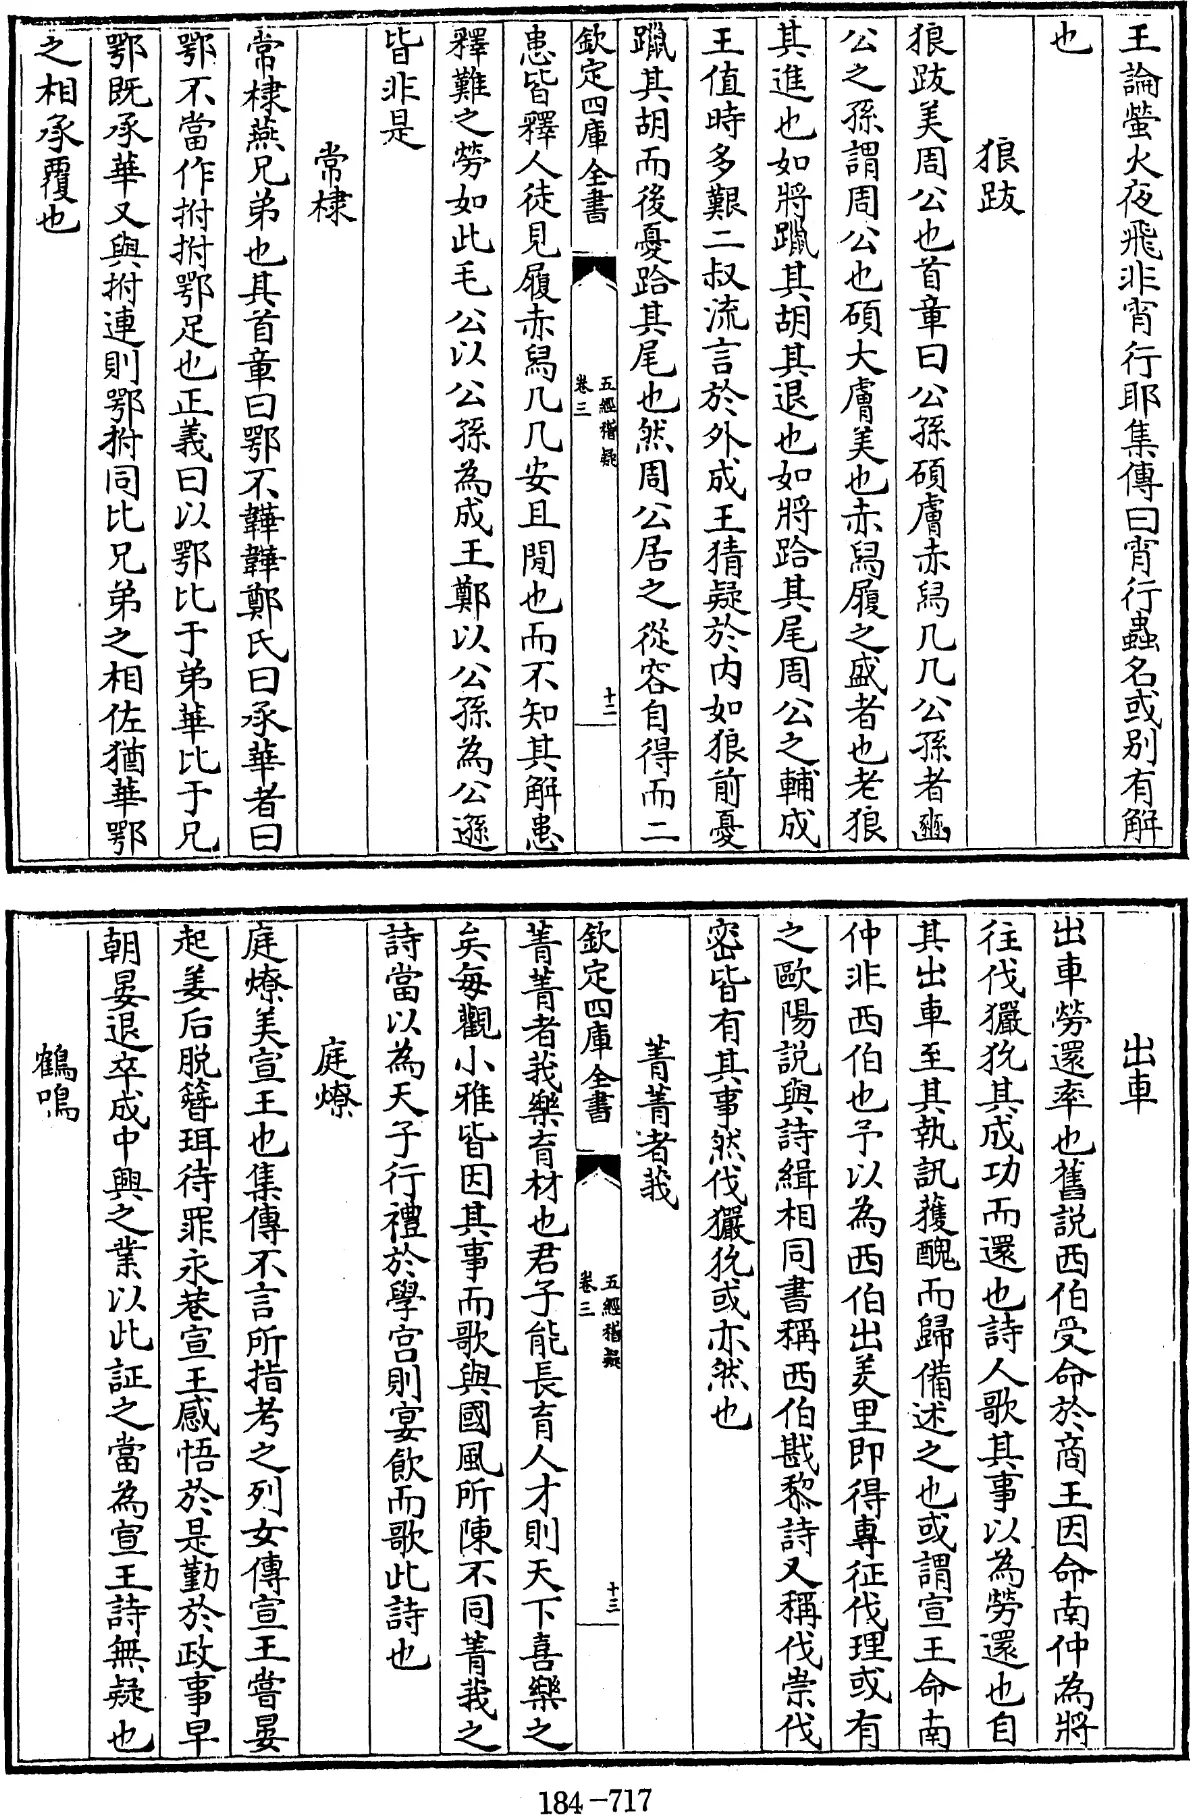 王論螢火夜飛非宵行耶集傳曰宵行蟲名或別有解
也
狼跋
狼跋美周公也首章曰公孫碩膚赤舄几几公孫者豳
公之孫謂周公也碩大膚美也赤舄履之盛者也老狼
其進也如將躐其胡其退也如將跲其尾周公之輔成
王值時多艱二叔流言於外成王猜疑於内如狼前憂
躐其胡而後憂跲其尾也然周公居之從容自得而二
欽定四庫全書
五經稽疑
卷三
十二
患皆釋人徒見履赤舄几几安且閒也而不知其解患
釋難之勞如此毛公以公孫為成王鄭以公孫為公遜
皆非是
常棣
常棣燕兄弟也其首章曰鄂不韡韡鄭氏曰承華者曰
鄂不當作拊拊鄂足也正義曰以鄂比于弟華比于兄
鄂既承華又與拊連則鄂拊同比兄弟之相佐猶華鄂
之相承覆也
出車
出車勞還率也舊説西伯受命於商王因命南仲為將
往伐玁狁其成功而還也詩人歌其事以為勞還也自
其出車至其執訊獲醜而歸備述之也或謂宣王命南
仲非西伯也予以為西伯出羑里即得專征伐理或有
之歐陽説與詩緝相同書稱西伯戡黎詩又稱伐崇伐
密皆有其事然伐玁狁或亦然也
菁菁者莪
欽定四庫全書
五經稽疑
卷三
十三
菁菁者莪樂育材也君子能長育人才則天下喜樂之
矣每觀小雅皆因其事而歌與國風所陳不同菁莪之
詩當以為天子行禮於學宫則宴飲而歌此詩也
庭燎
庭燎美宣王也集傳不言所指考之列女傳宣王嘗晏
起姜后脱簪珥待罪永巷宣王感悟於是勤於政事早
朝晏退卒成中興之業以此証之當為宣王詩無疑也
鶴鳴
184-717